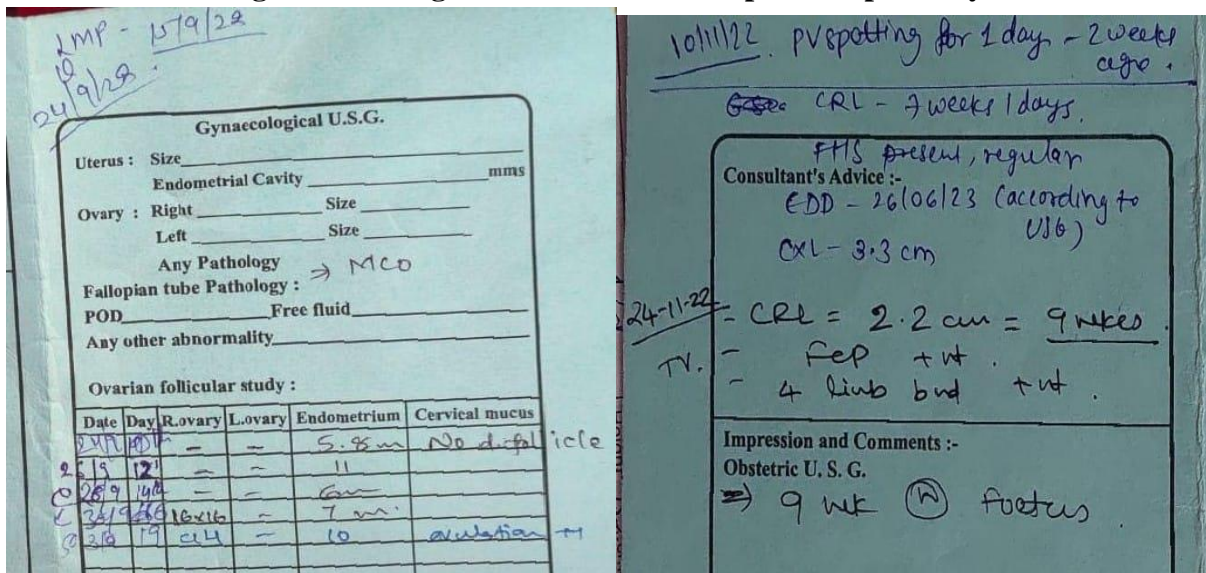 LMP - 15/9/22
24/9/22
Gynaecological U.S.G.
Uterus : Size
Endometrial Cavity mms
Ovary : Right Size
Left Size
Any Pathology → MCO
Fallopian tube Pathology :
POD Free fluid
Any other abnormality
Ovarian follicular study :
Date Day R.ovary L.ovary Endometrium Cervical mucus
24/9 - - 5.8 m No d. follicle
26/9 12 - - 11
28/9 14 - - 6
16x16 - 7 m.
19 - 10 ovulation
10/11/22. PV spotting for 1 day - 2 weeks
ago.
CRL - 7 weeks 1 days.
FHS present, regular
Consultant's Advice :-
EDD - 26/06/23 (according to
USG)
CXL - 3.3 cm
24-11-22 - CRL = 2.2 cm = 9 wkes
TV. - Fep + nt.
- 4 limb bud + nt.
Impression and Comments :-
Obstetric U. S. G.
⇒ 9 wk (N) foetus.